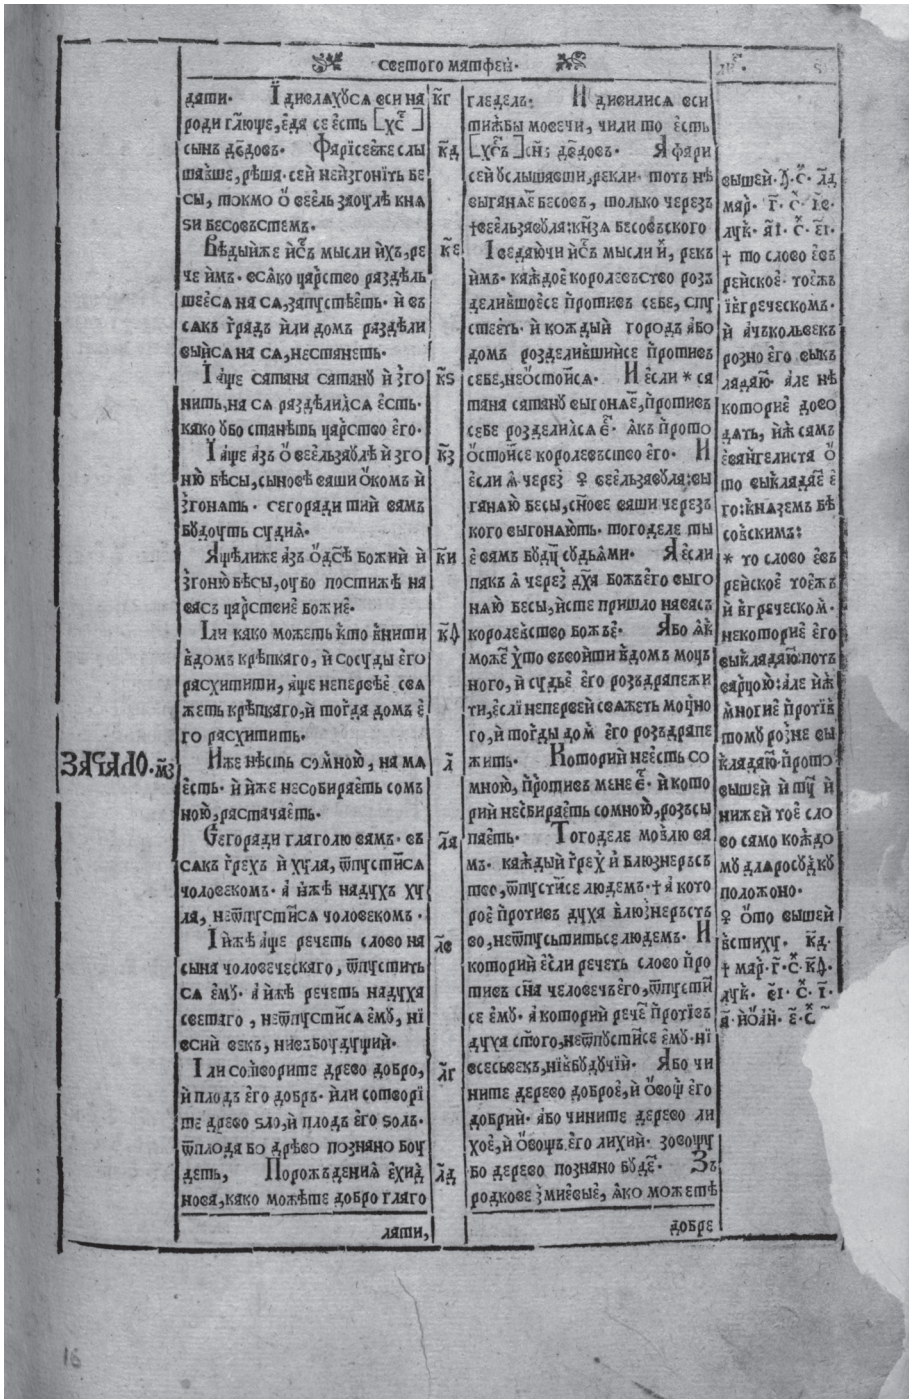 светого матфей·
дати· І дивлѧхуса вси на
роди гл҃юще, єда се єсть [хс҃]
сынъ дв҃довъ· Фарїсеєже слы
шавше, рѣша· сей неизгонить бе
сы, токмо ѡ веель заоулѣ кнѧ
ѕи бесовъстемъ·
Вѣдыйже іи҃съ мысли ихъ, ре
че имъ· всѧко царство раздѣль
шеесѧ на сѧ, запустѣеть· и въ
сѧкъ градъ или домъ раздѣли
выйсѧ на сѧ, нестанеть·
І аще сатана сатану изго
нить, на сѧ раздѣлилсѧ єсть·
како убо станѣть царство его·
І аще азъ ѡ веельзаулѣ изго
ню бѣсы, сынове ваши ѡкомъ и
згонѧть· сегоради тий вамъ
будоуть судиѧ·
Ащѣлиже азъ ѡ дс҃ѣ божий и
згоню бѣсы, оубо постижѣ на
васъ царствиє божиє·
Іли како можеть кто внити
вдомъ крѣпкаго, и сосуды его
расхитити, аще непервѣє свѧ
жеть крѣпкаго, и тогда домъ є
го расхитить·
Иже нѣсть сомною, на мѧ
єсть· и иже несобираєть сомъ
ною, растачаєть·
Сегоради глаголю вамъ· въ
сакъ грехъ и хула, ѿпустисѧ
чоловекомъ· а ижѣ надухъ ху
ла, неѿпустисѧ чоловекомъ·
І ижѣ аще речеть слово на
сына чоловеческаго, ѿпустить
сѧ єму· а ижѣ речеть надуха
светаго, неѿпустисѧ єму, нї
всий векъ, нивъбоудущий·
Іли сотворите древо добро,
и плодъ его добръ· или сотворї
те древо ѕло, и плодъ его ѕолъ·
ѿплода бо дрѣво познано боу
деть, Порожъдениѧ єхид
нова, како можѣте добро глаго
лати,
к҃г
к҃д
к҃е
к҃ѕ
к҃з
к҃и
к҃ѳ
л҃
л҃а
л҃в
л҃г
л҃д
ЗАЧАЛО· м҃з
гледелъ: И дивилисѧ вси
тижбы мовечи, чили то єсть
[хс҃ъ] сн҃; дв҃довъ· А фари
сей услышавши, рекли· тотъ нѣ
выганѧе бесовъ, только черезъ
†веельзавула: кн҃зѧ бесовъского
І ведаючи іи҃съ мысли и, рекъ
имъ· каждоє королевъство розъ
делившоєсе противъ себе, спу
стеєть· и кождый городъ або
домъ розделившийсе противъ
себе, неѡстоисѧ· И єсли * са
тана сатану выгонѧє, противъ
себе розделилсѧ є· ѧкъ прото
ѡстоисе королевъство его· И
єсли ѧ через ♀ веельзавула: вы
ганѧю бесы, сн҃ове ваши черезъ
кого выгонѧють· тогоделе ты
є вамъ буду судьѧми· А єсли
пакъ ѧ через дх҃а божъего выго
нѧю бесы, исте пришло навасъ
королевство божъє· Або ѧк
може хто въвойти вдомъ моцъ
ного, и судьє его розъдрапежи
ти, єслі непервей свѧжеть моцно
го, и тогды дом его розъдрапе
жить· Которий неєсть со
мною, противъ мене є· и кото
рий несбираєть сомною, розъсы
паєть· Тогоделе мовлю ва
мъ· каждый грех и блюзнеръсъ
тво, ѿпустисе людемъ· † а кото
роє противъ духа блюзнеръстъ
во, неѿпусьтитьсе людемъ· И
которий єсли речеть слово про
тивъ сн҃а человечъего, ѿпусти
се єму· а который рече протївъ
духа ст҃ого, неѿпустисе єму· нї
всесьвекъ, нївбудучїй· Або чи
ните дерево доброє, и ѡвощ его
добрий· або чините дерево ли
хоє, и ѡвощъ его лихий· зовощу
бо дерево познано буде· Зъ
родкове змиєвыє, ѧко можетѣ
добре
вышей· Ѳ· с҃· л҃д
мар· г҃· с҃· і҃в·
лук· а҃і· с҃· є҃і·
† то слово євъ
рейскоє· тоєжъ
ївгреческомъ·
и ачъкольвекъ
розно его выкъ
ладаю· але нѣ
которыє дово
дѧть, иж самъ
єванѣгелиста ѡ
то выкладає є
го: кнѧземъ бѣ
совскимъ:
* то слово євъ
рейскоє тоєжъ
и вгреческом·
некоториє его
выкладаю: потъ
варцою: але иж
многиє протів
тому розне вы
кладаю· прото
вышей и ту и
нижей тоє сло
во само кождо
му длѧросудку
положоно·
♀ ѡто вышей
встиху· к҃д·
† мар· г҃· с҃· к҃ѳ·
лук· в҃і· с҃· і҃·
16